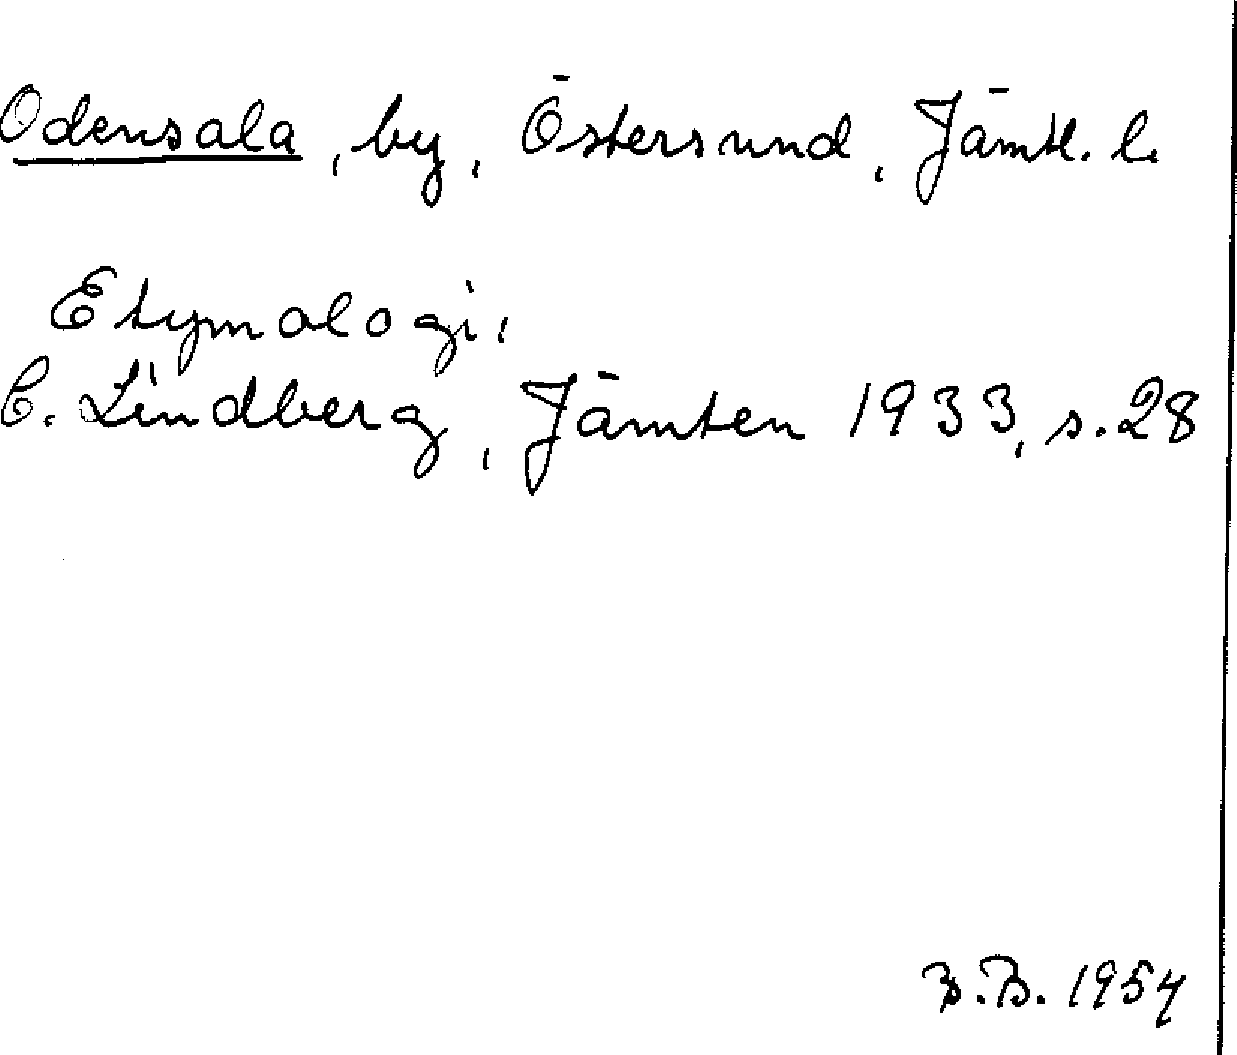 Odensala, by, Östersund, Jämtl. l.
Etymologi,
C. Lindberg, Jämten 1933, s. 28
B.B. 1954